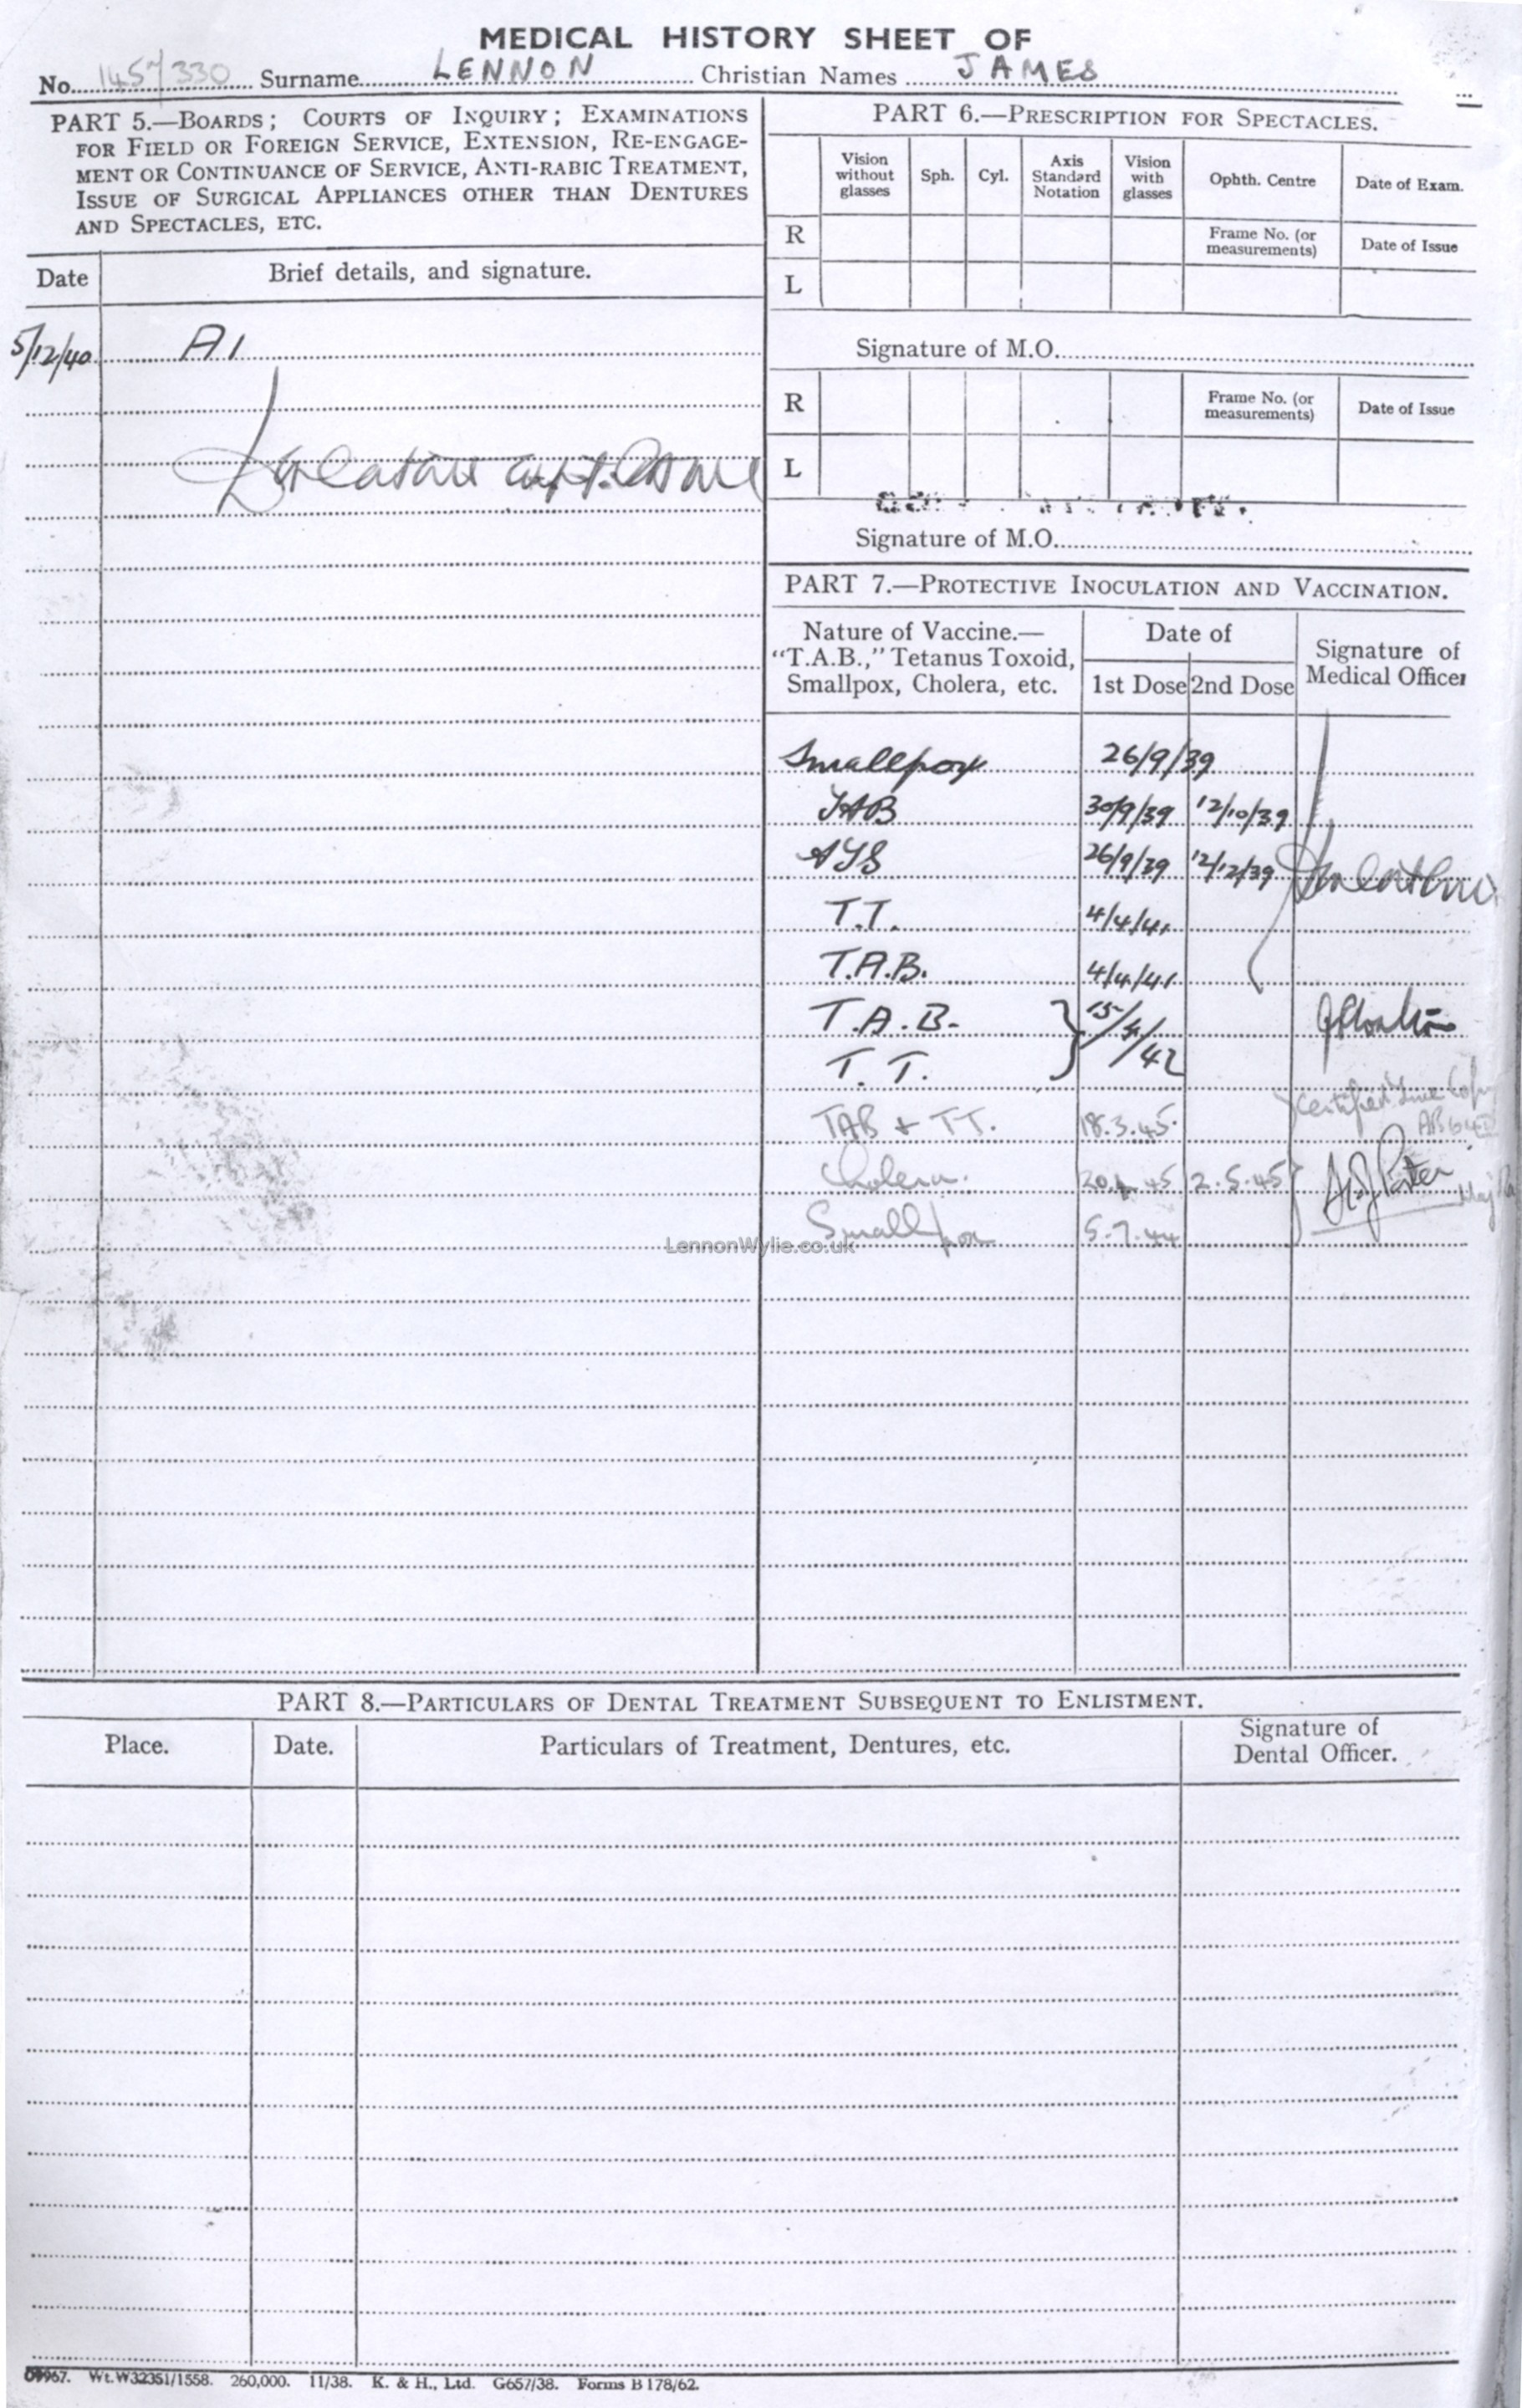 MEDICAL HISTORY SHEET OF
No. 1457330 Surname LENNON Christian Names JAMES
PART 5.—BOARDS; COURTS OF INQUIRY; EXAMINATIONS
FOR FIELD OR FOREIGN SERVICE, EXTENSION, RE-ENGAGE-
MENT OR CONTINUANCE OF SERVICE, ANTI-RABIC TREATMENT,
ISSUE OF SURGICAL APPLIANCES OTHER THAN DENTURES
AND SPECTACLES, ETC.
Date Brief details, and signature.
5/12/40 A1
Capt.
PART 6.—PRESCRIPTION FOR SPECTACLES.
Vision without glasses Sph. Cyl. Axis Standard Notation Vision with glasses Ophth. Centre Date of Exam.
R Frame No. (or measurements) Date of Issue
L
Signature of M.O.
R Frame No. (or measurements) Date of Issue
L
Signature of M.O.
PART 7.—PROTECTIVE INOCULATION AND VACCINATION.
Nature of Vaccine.—
"T.A.B.," Tetanus Toxoid,
Smallpox, Cholera, etc.
Date of
1st Dose 2nd Dose
Signature of
Medical Officer
Smallpox 26/9/39
TAB 30/9/39 12/10/39
ATS 26/9/39 12/12/39
T.T. 4/4/41
T.A.B. 4/4/41
T.A.B. } 15/4/42
T. T.
Certified True Copy
AB 64
TAB + TT. 18.3.45.
Cholera. 20.4.45 2.5.45
Porter Maj
Smallpox 5.7.44
LennonWylie.co.uk
PART 8.—PARTICULARS OF DENTAL TREATMENT SUBSEQUENT TO ENLISTMENT.
Place. Date. Particulars of Treatment, Dentures, etc. Signature of
Dental Officer.
09967. Wt.W32351/1558. 260,000. 11/38. K. & H., Ltd. G657/38. Forms B178/62.